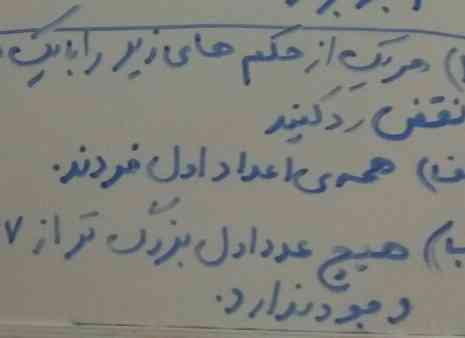 ) هریک از حکم های زیر را با یک
نقض رد کنید
ف) همه‌ی اعداد اول فردند.
با) هیچ عدد اول بزرگ تر از ۷
وجود ندارد.